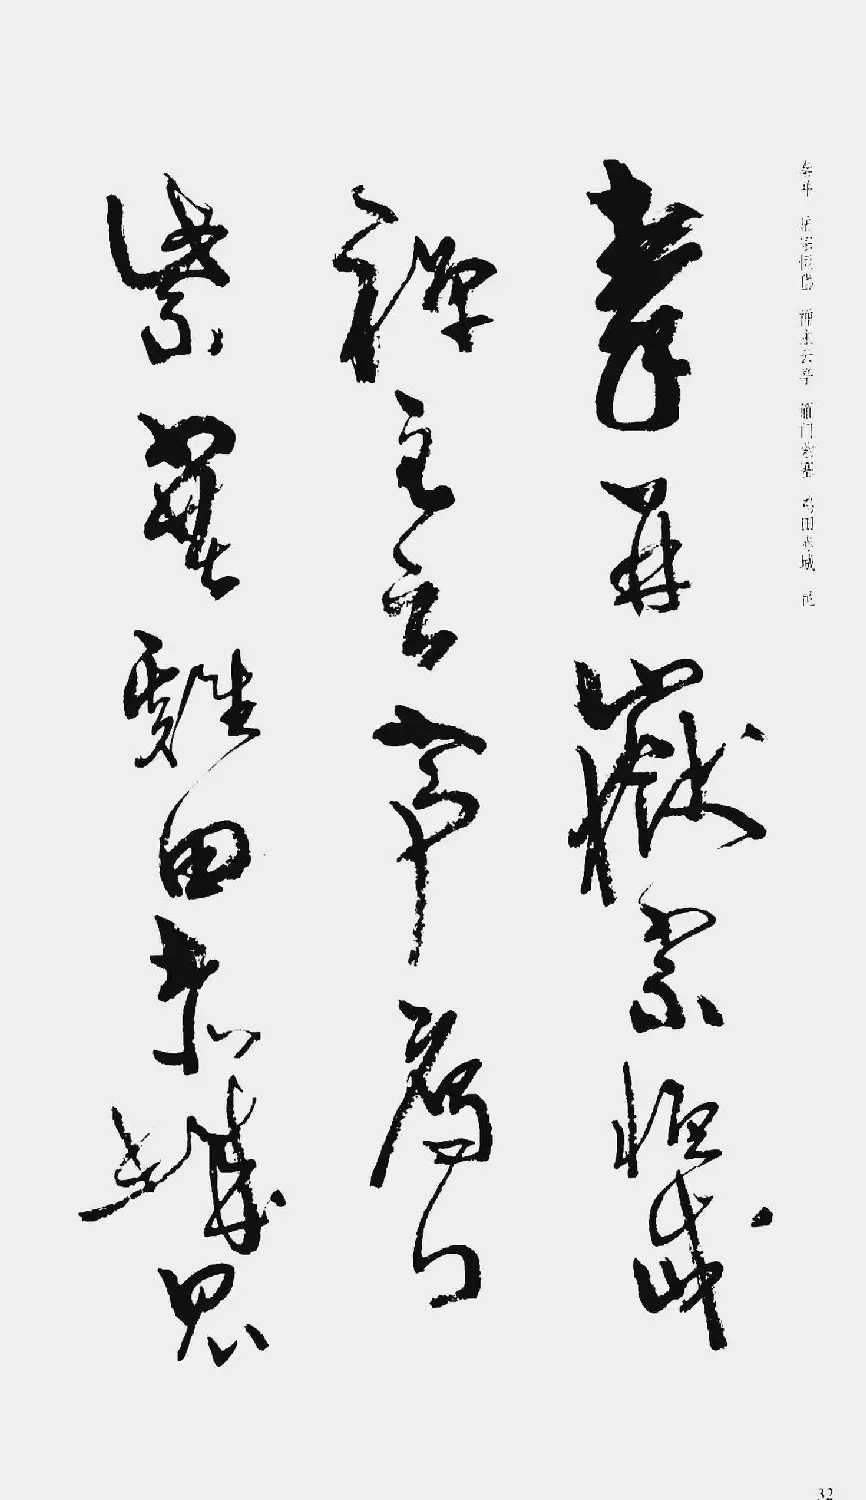 秦并 岳宗恒岱 禅主云亭 雁门紫塞 鸡田赤城 昆
秦并嶽宗恒岱
禪主云亭雁門
紫塞雞田赤城昆
32